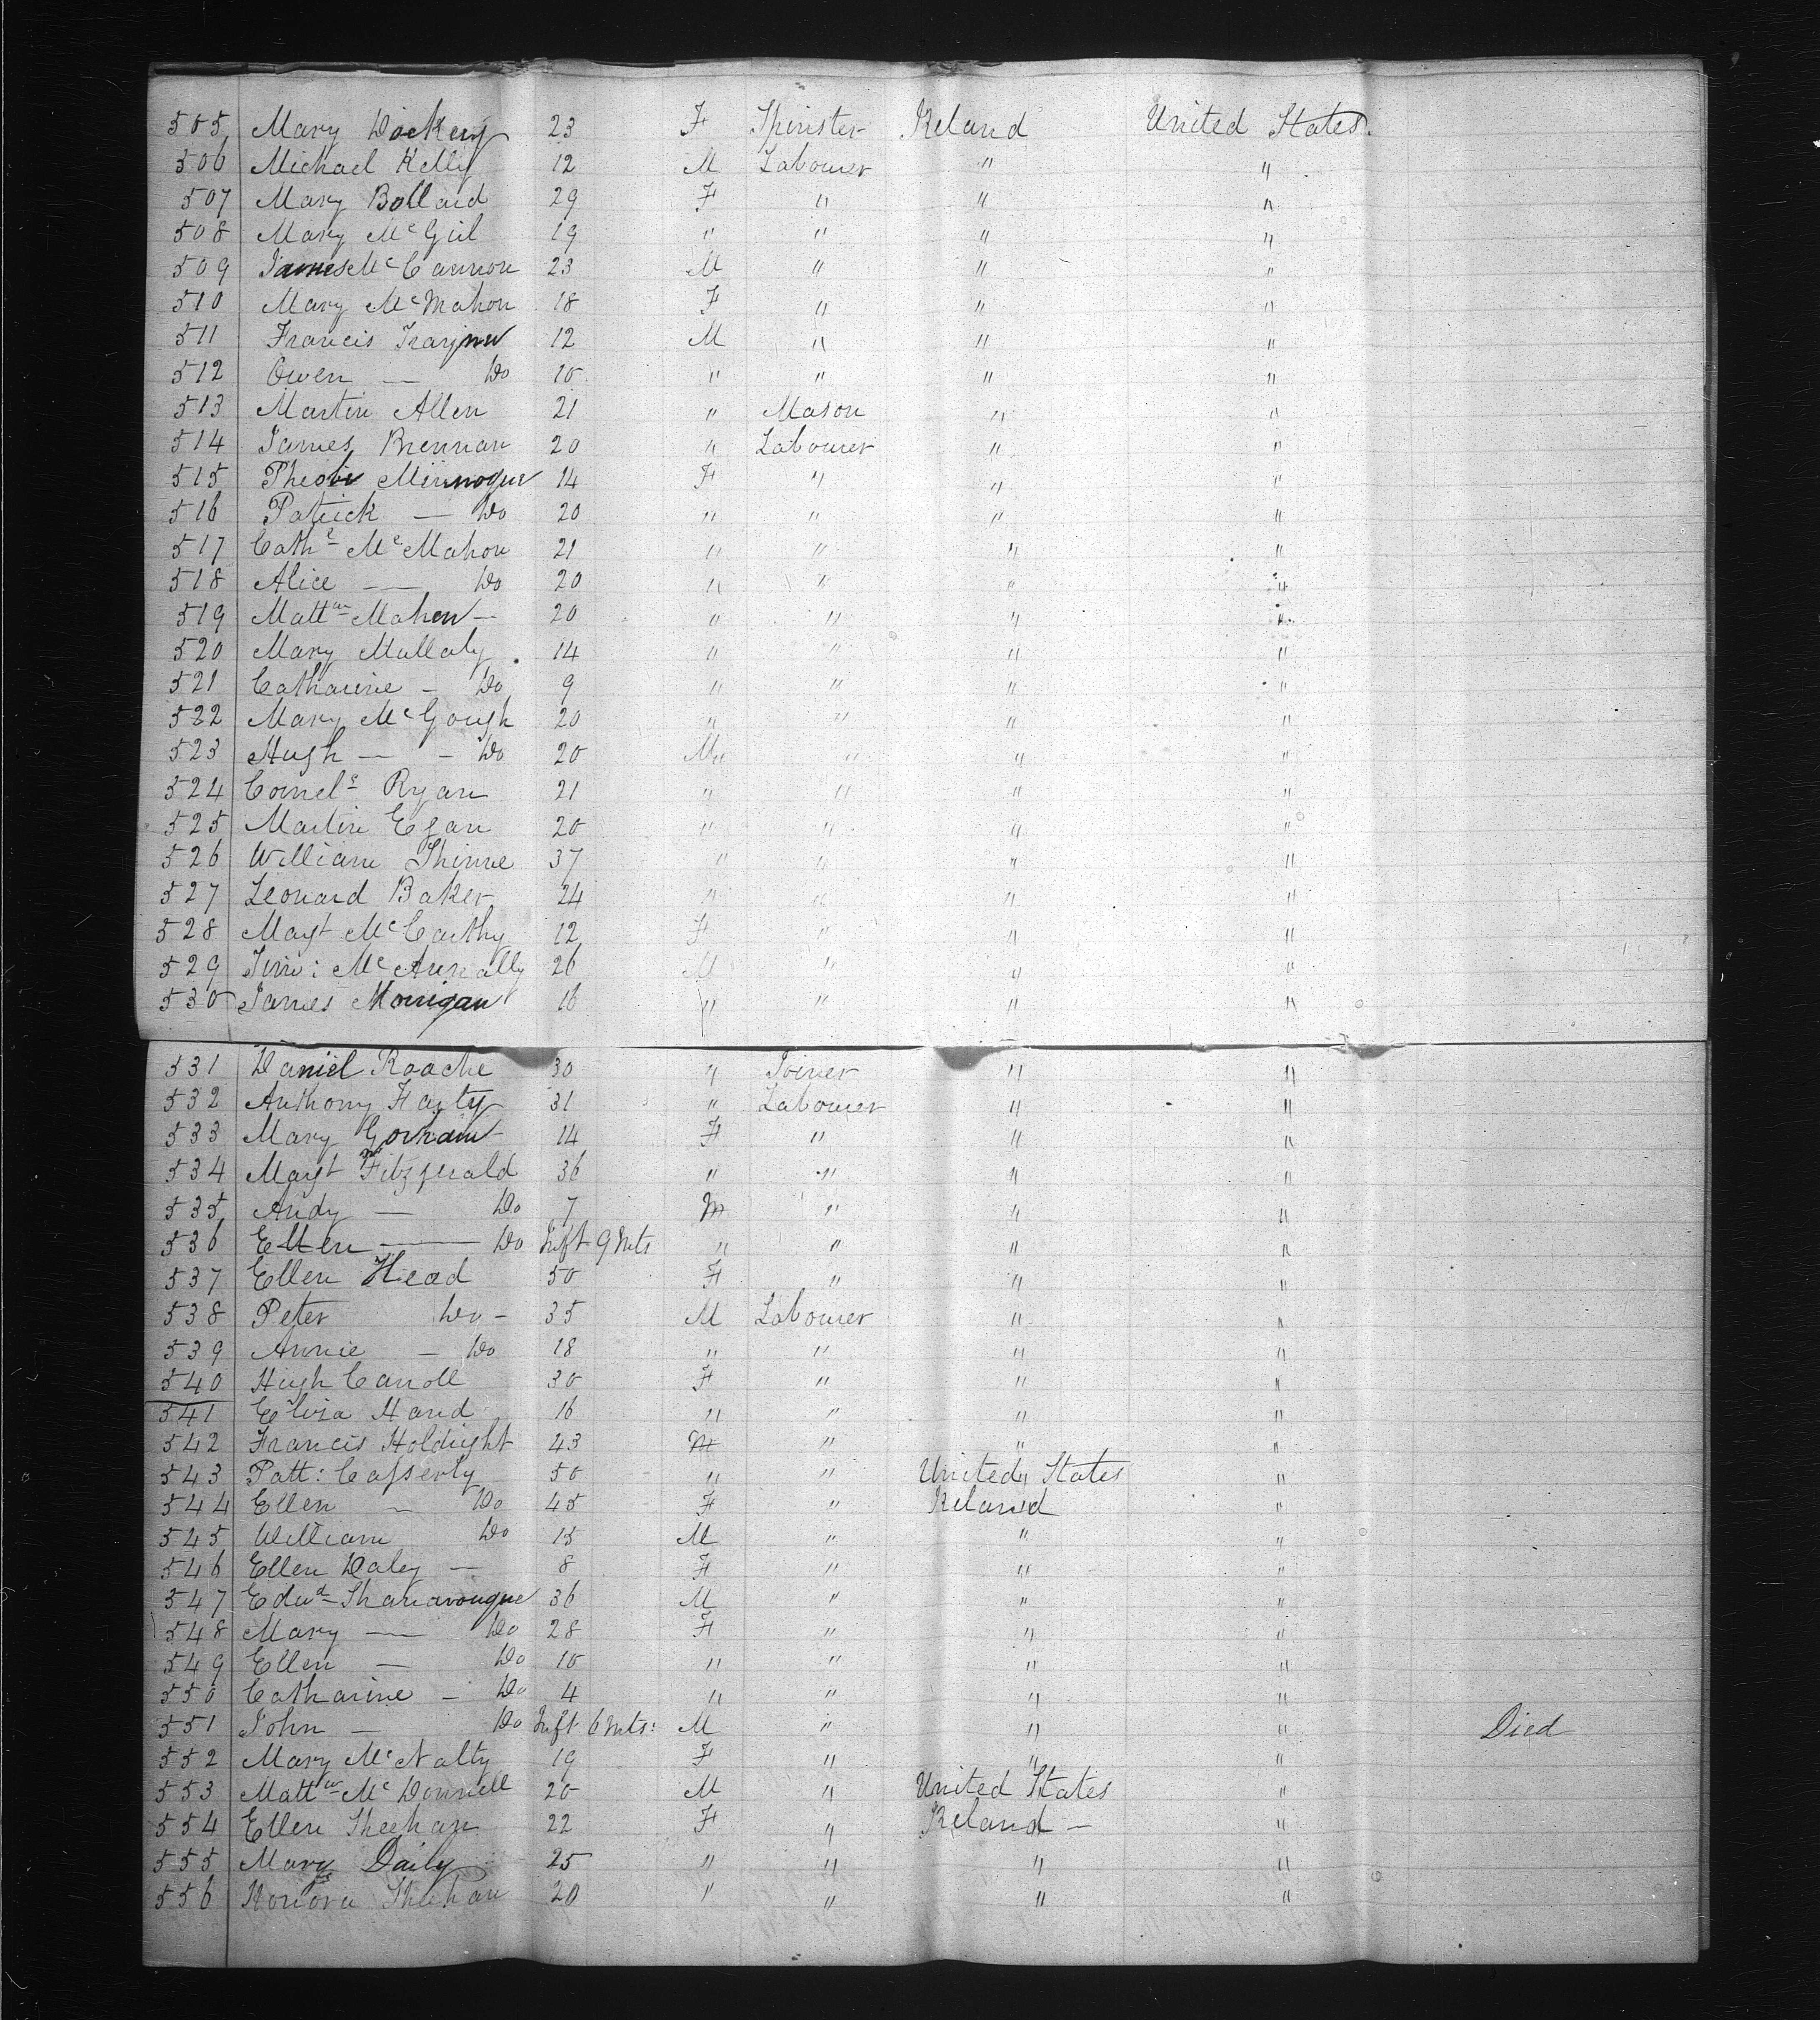 505 Mary Dockery 23 F Spinster Ireland United States.
506 Michael Kelly 12 M Labourer " "
507 Mary Bolland 29 F " " "
508 Mary McGiel 19 " " " "
509 James McCannon 23 M " " "
510 Mary McMahon 18 F " " "
511 Francis Traynor 12 M " " "
512 Owen — Do 10 " " " "
513 Martin Allen 21 " Mason " "
514 James Brennan 20 " Labourer " "
515 Pheobe Minnogue 14 F " " "
516 Patrick — Do 20 " " " "
517 Cathe McMahon 21 " " " "
518 Alice — Do 20 " " " "
519 Mattw Mahon — 20 " " " "
520 Mary Mullaly 14 " " " "
521 Catharine — Do 9 " " " "
522 Mary McGough 20 " " " "
523 Hugh — - Do 20 M" " " "
524 Cornels Ryan 21 " " " "
525 Martin Egan 20 " " " "
526 William Shinne 37 " " " "
527 Leonard Baker 24 " " " "
528 Margt McCarthy 12 F " " "
529 Tim: McAnnally 26 M " " "
530 James Monigan 16 " " " "
531 Daniel Roache 30 " Joiner " "
532 Anthony Harty 31 " Labourer " "
533 Mary Gorham 14 F " " "
534 Margt Fitzgerald 36 " " " "
535 Andy — Do 7 M " " "
536 Ellen — Do Inft 9 Mts " " " "
537 Ellen Head 50 F " " "
538 Peter Do - 35 M Labourer " "
539 Annie — Do 18 " " " "
540 Hugh Caroll 30 F " " "
541 Eliza Hand 16 " " " "
542 Francis Holdright 43 M " " "
543 Patt: Cafferty 50 " " United States "
544 Ellen — Do 45 F " Ireland "
545 William Do 15 M " " "
546 Ellen Daley — 8 F " " "
547 Edwd Shanavougue 36 M " " "
548 Mary — Do 28 F " " "
549 Ellen — Do 10 " " " "
550 Catharine — Do 4 " " " "
551 John — Do Inft 6 Mts: M " " " Died
552 Mary McNalty 19 F " " "
553 Mattw McDonnell 20 M " United States "
554 Ellen Sheehan 22 F " Ireland — "
555 Mary Daily 25 " " " "
556 Honora Sheehan 20 " " " "